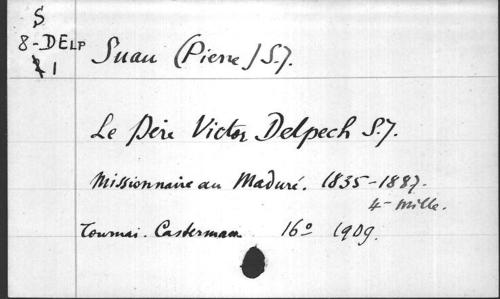 S
8-DELP
1
Suau (Pierre) S.J.
Le Père Victor Delpech S.J.
Missionnaire au Maduré. 1835-1887.
4e mille.
Tournai. Casterman 16° 1909.